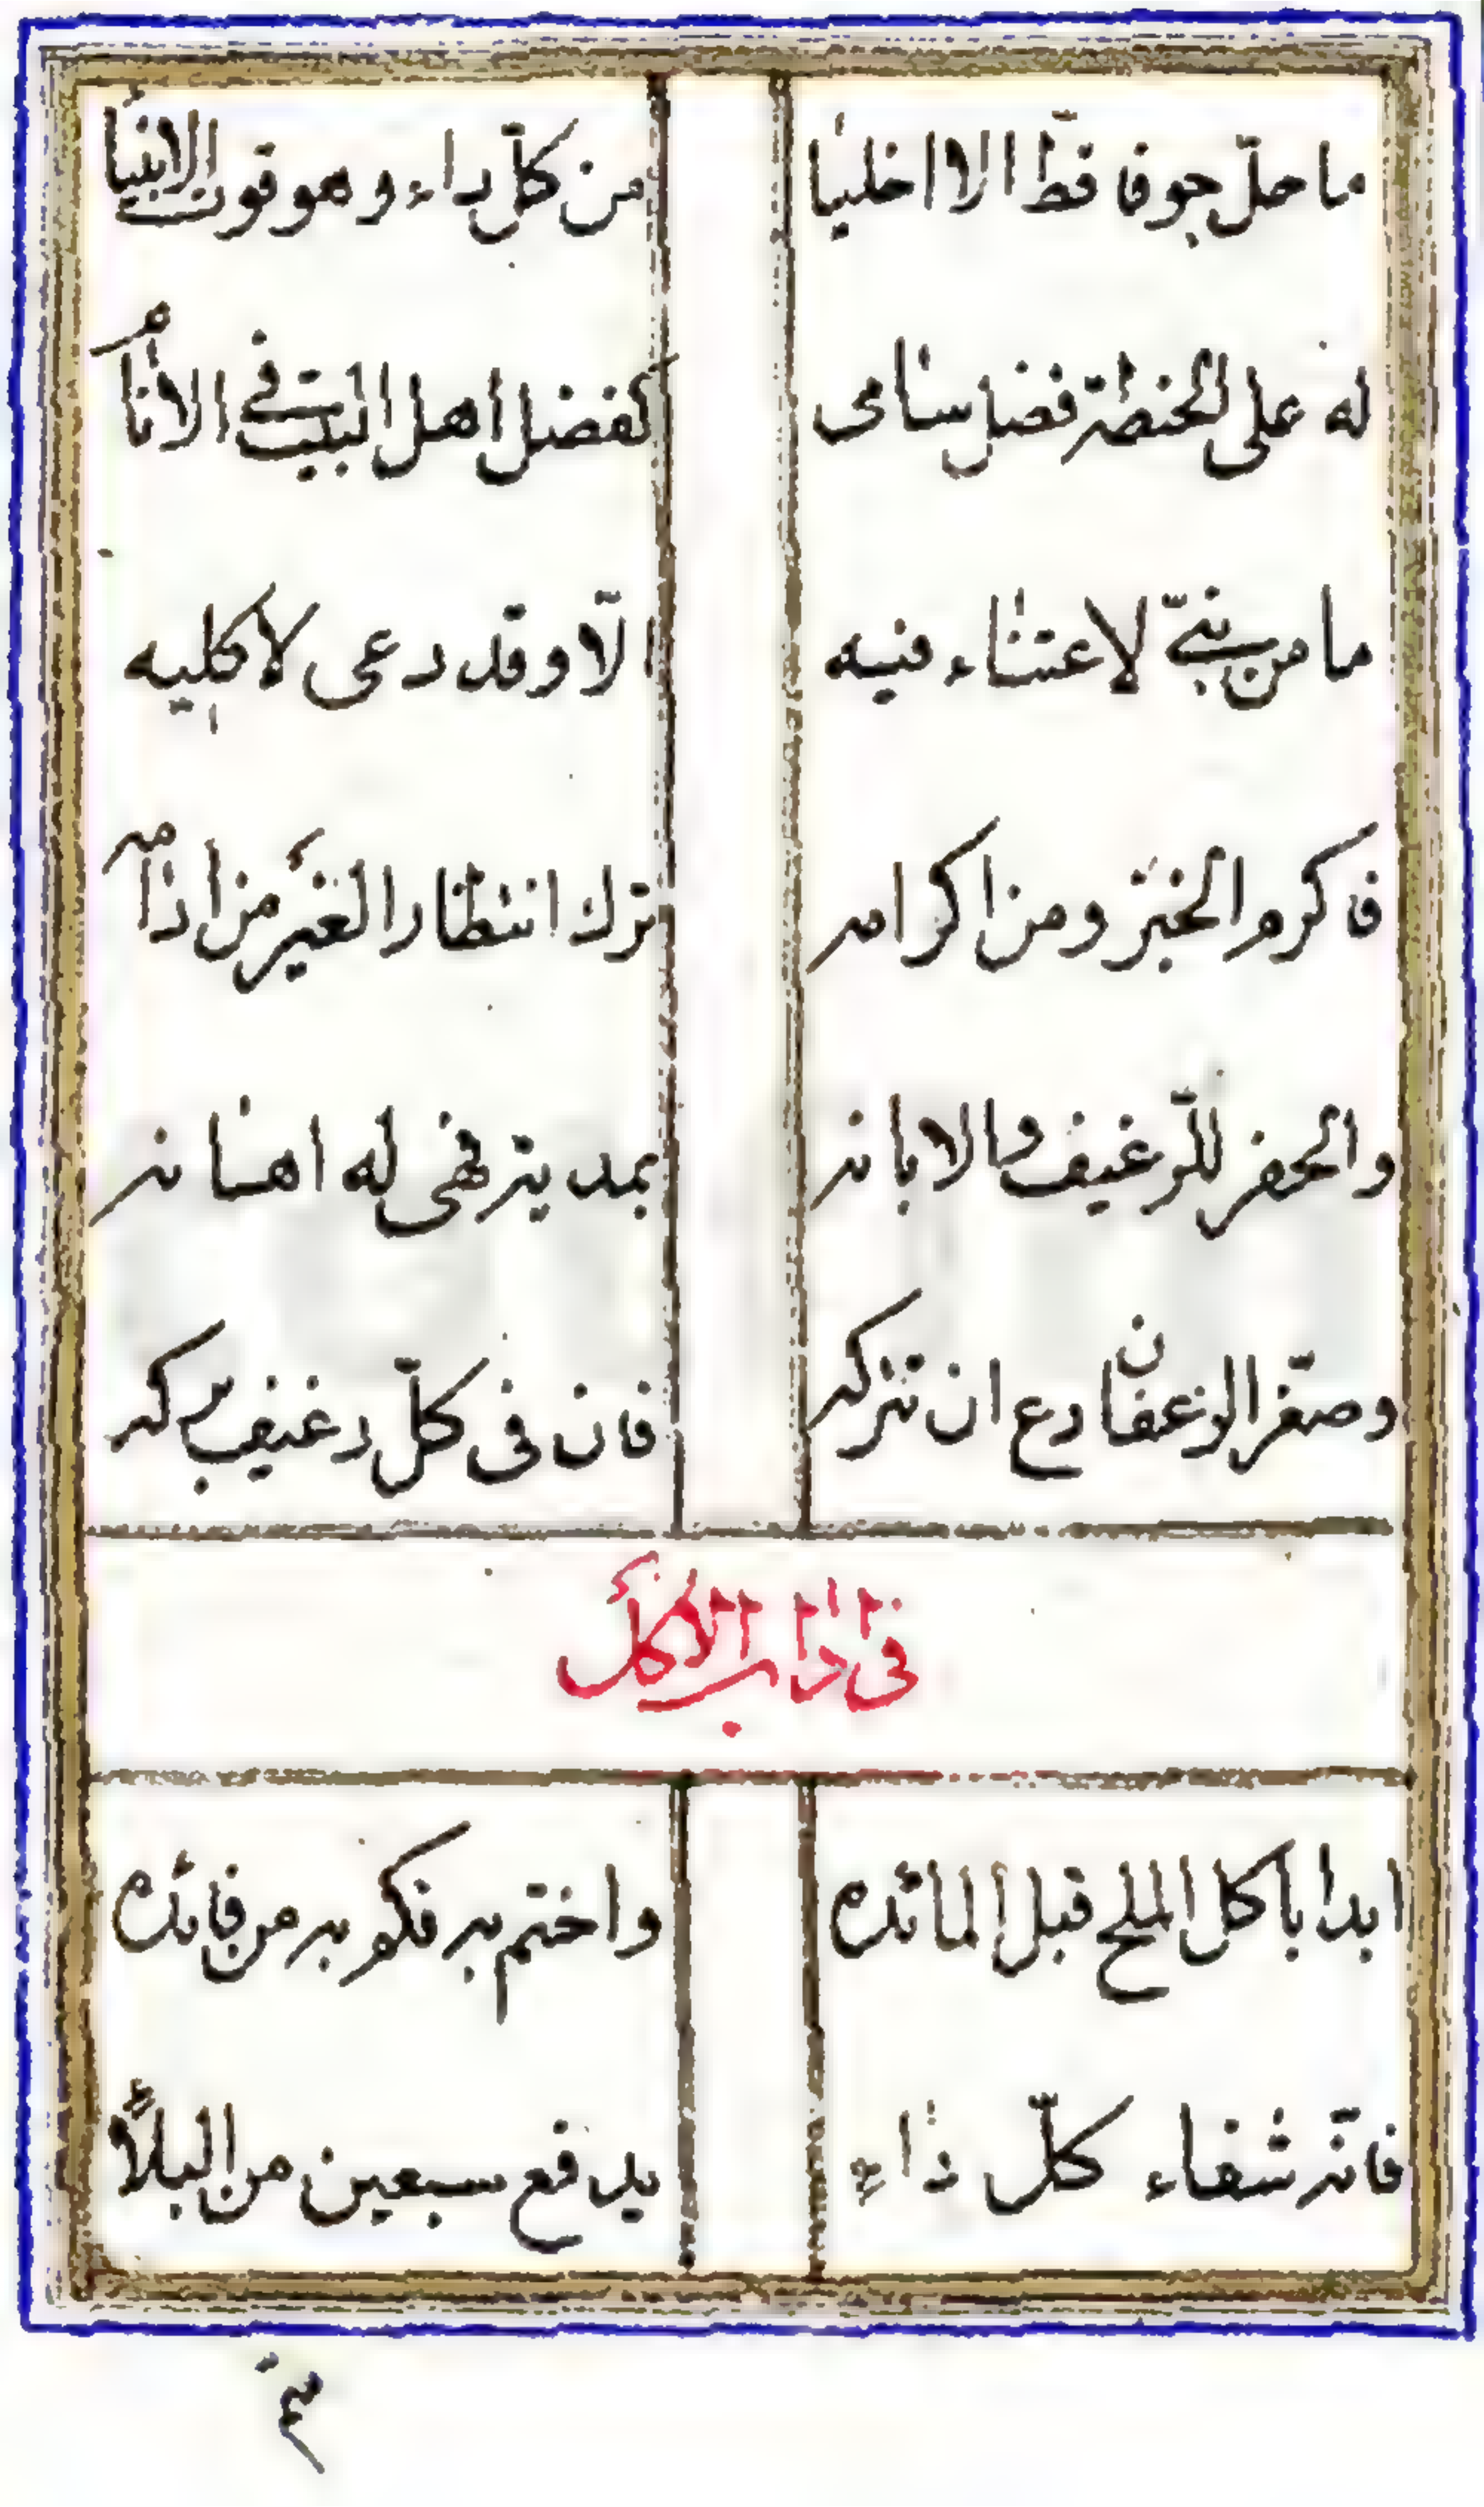 ما حلّ جوفا قطّ الا اخليا من كلّ داء وهو قوت الانبيا
له على الحنطة فضل سامى كفضل اهل البيت فى الانام
ما من نبىّ لاعتناء فيه الّا وقد دعى لاكليه
فاكرم الخبز ومن اكرامه ترك انتظار الغير من ادامه
والحفر للرّغيف والابانه بمدية فهى له اهانه
وصغّر الرغفان دع ان تتركه فان فى كلّ رغيف بركه
فى اداب الاكل
ابدا باكل الملح قبل المائده واختم به فكم به من فائده
فانّه شفاء كلّ داء يدفع سبعين من البلاء